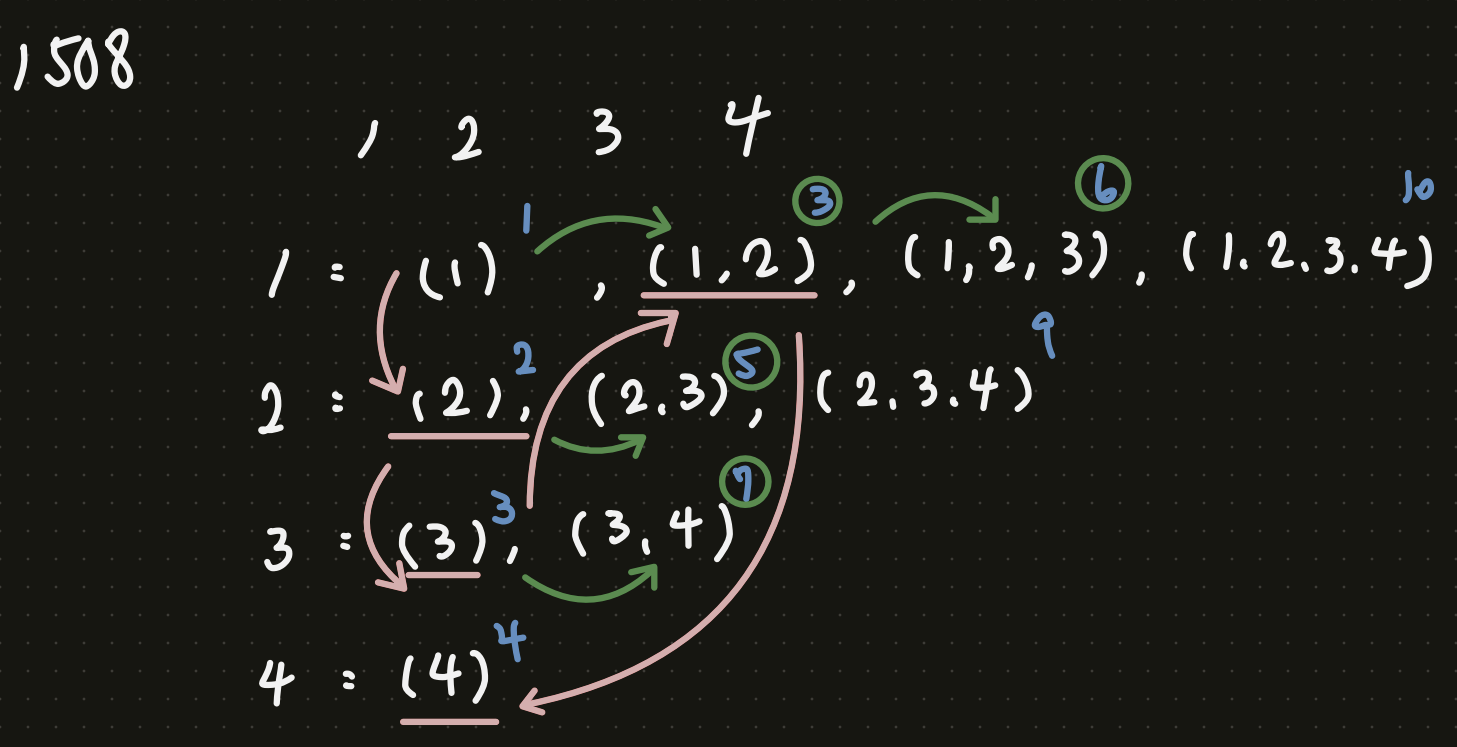 1508
1 2 3 4
1 = (1) 1 , (1,2) 3 , (1,2,3) 6 , (1.2.3.4) 10
2 = (2) 2 , (2.3) 5 , (2.3.4) 9
3 = (3) 3 , (3,4) 7
4 = (4) 4